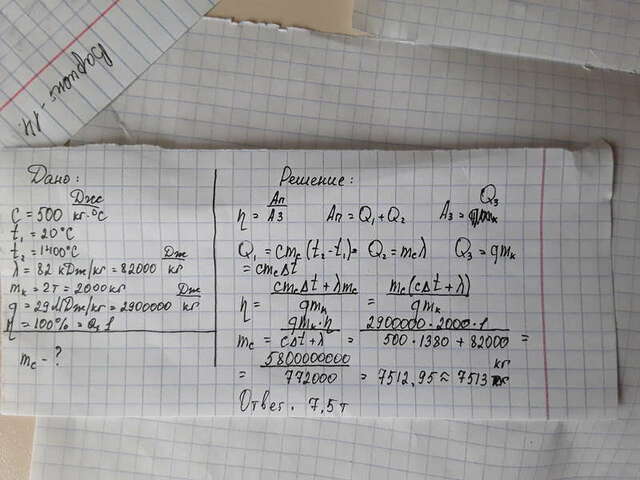 Вариант - 14
Дано:
c = 500 Дж/кг·°C
t₁ = 20°C
t₂ = 1400°C
λ = 82 кДж/кг = 82000 Дж/кг
mₖ = 2т = 2000кг
q = 29МДж/кг = 2900000 Дж/кг
η = 100% =
m꜀ - ?
Решение:
η = Aп/Aз Aп = Q₁ + Q₂ Aз = Q₃
Q₁ = cm꜀(t₂ - t₁) = Q₂ = m꜀λ Q₃ = qmₖ
= cm꜀Δt
η = qmₖ/cm꜀Δt + λm꜀ = qmₖ/m꜀(cΔt + λ)
m꜀ = qmₖ·η/cΔt + λ = 2900000·2000·1/500·1380 + 82000 =
= 5800000000/772000 = 7512,95 ≈ 7513 кг
Ответ: 7,5 т